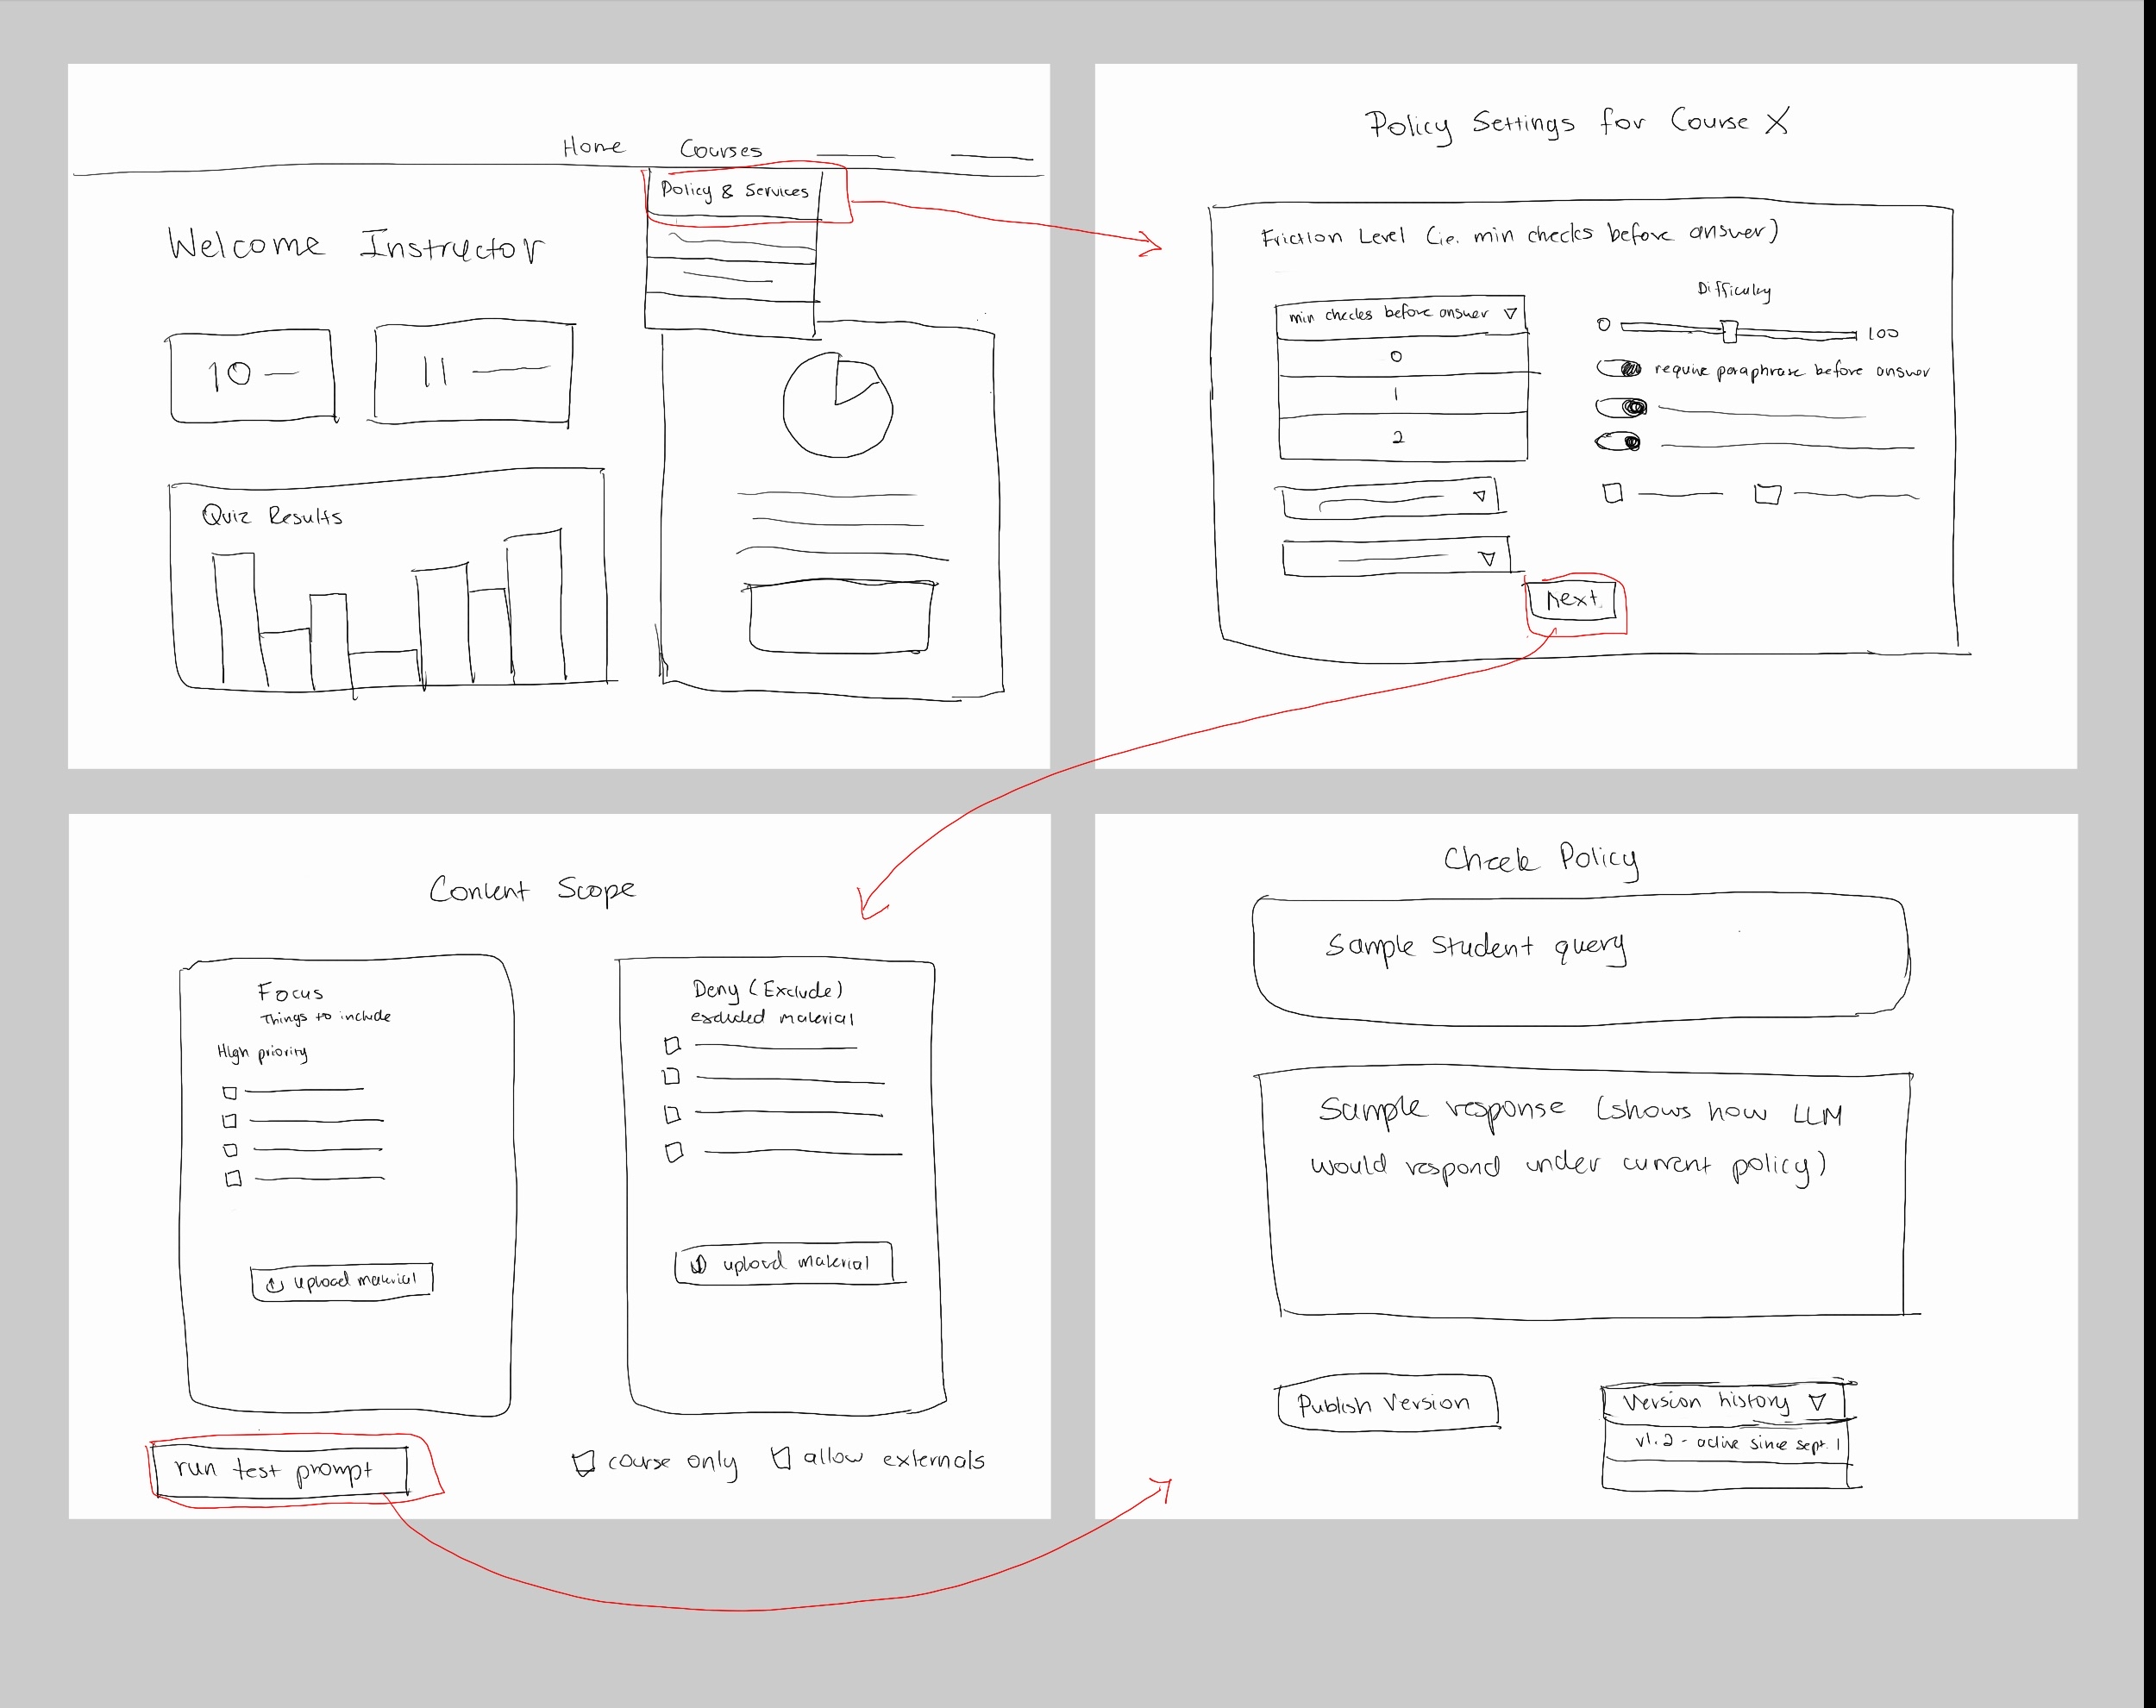 Home Courses
Policy & Services
Welcome Instructor
10
11
Quiz Results
Policy Settings for Course X
Friction Level (ie. min checks before answer)
min checks before answer
0
1
2
Difficulty
0 100
require paraphrase before answer
next
Content Scope
Focus
Things to include
High priority
upload material
Deny (Exclude)
excluded material
upload material
run test prompt
course only allow externals
Check Policy
Sample Student query
Sample response (shows how LLM
would respond under current policy)
Publish Version
Version history
v1.2 - active since sept. 1